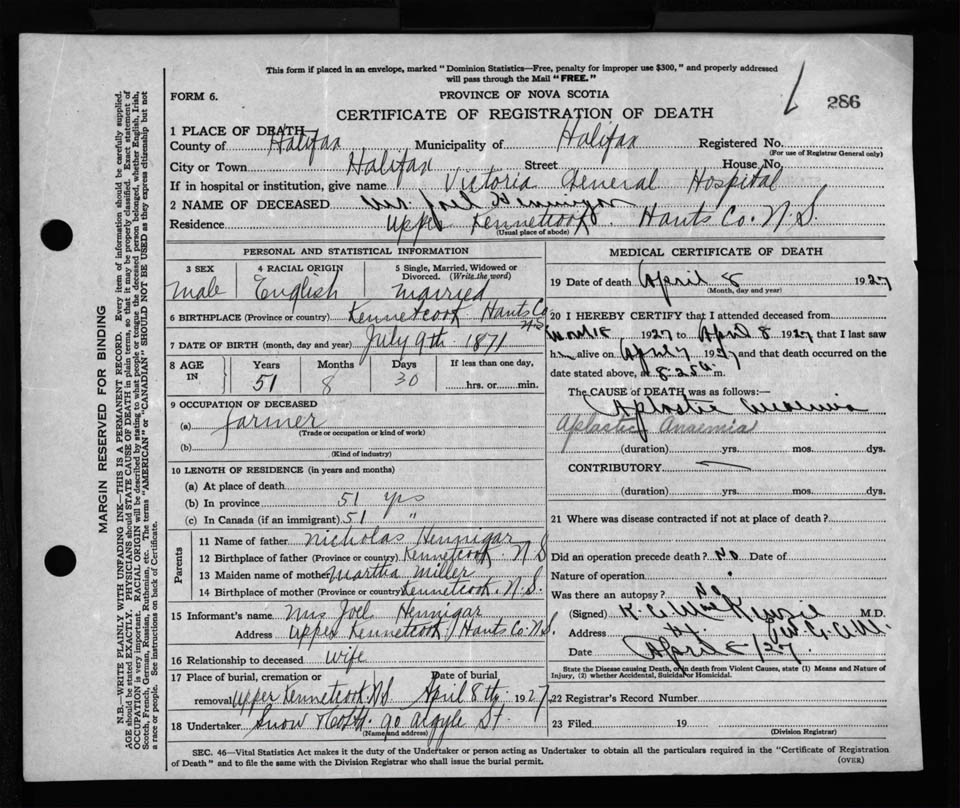 This form if placed in an envelope, marked "Dominion Statistics—Free, penalty for improper use $300," and properly addressed
will pass through the Mail "FREE."
FORM 6.
PROVINCE OF NOVA SCOTIA
286
CERTIFICATE OF REGISTRATION OF DEATH
1 PLACE OF DEATH
County of Halifax Municipality of Halifax Registered No.
(For use of Registrar General only)
City or Town Halifax Street House No.
If in hospital or institution, give name Victoria General Hospital
2 NAME OF DECEASED Mr. Joel Hennigar
Residence Upper Kennetcook. Hants Co. N.S.
(Usual place of abode)
PERSONAL AND STATISTICAL INFORMATION
3 SEX 4 RACIAL ORIGIN 5 Single, Married, Widowed or
Divorced. (Write the word)
Male English Married
6 BIRTHPLACE (Province or country) Kennetcook Hants Co
N.S
7 DATE OF BIRTH (month, day and year) July 9th 1871
8 AGE IN Years Months Days If less than one day,
51 8 30 hrs. or min.
9 OCCUPATION OF DECEASED
(a) farmer
(Trade or occupation or kind of work)
(b)
(Kind of industry)
10 LENGTH OF RESIDENCE (in years and months)
(a) At place of death
(b) In province 51 yrs
(c) In Canada (if an immigrant) 51 "
Parents
11 Name of father Nicholas Hennigar
12 Birthplace of father (Province or country) Kennetcook N S
13 Maiden name of mother Martha Miller
14 Birthplace of mother (Province or country) Kennetcook, N.S.
15 Informant's name Mrs Joel Hennigar
Address Upper Kennetcook, Hants Co. N.S.
16 Relationship to deceased wife
17 Place of burial, cremation or Date of burial
removal Upper Kennetcook N.S April 8th 1927
18 Undertaker Snow & Co Ltd. 90 Argyle St.
(Name and address)
MEDICAL CERTIFICATE OF DEATH
19 Date of death April 8 1927
(Month, day and year)
20 I HEREBY CERTIFY that I attended deceased from
1927 to April 8 1927 that I last saw
h alive on April 7 1927 and that death occurred on the
date stated above, at 8.25 a.m.
The CAUSE OF DEATH was as follows:
Aplastic anaemia
Aplastic Anaemia
(duration) yrs. mos. dys.
CONTRIBUTORY
(duration) yrs. mos. dys.
21 Where was disease contracted if not at place of death?
Did an operation precede death? No Date of
Nature of operation
Was there an autopsy? No
(Signed) K. A. MacKenzie M.D.
Address
Date April 8/27.
State the Disease causing Death, or in death from Violent Causes, state (1) Means and Nature of
Injury, (2) whether Accidental, Suicidal or Homicidal.
22 Registrar's Record Number
23 Filed 19
(Division Registrar)
SEC. 46—Vital Statistics Act makes it the duty of the Undertaker or person acting as Undertaker to obtain all the particulars required in the "Certificate of Registration
of Death" and to file the same with the Division Registrar who shall issue the burial permit.
(OVER)
MARGIN RESERVED FOR BINDING
N.B.—WRITE PLAINLY WITH UNFADING INK—THIS IS A PERMANENT RECORD. Every item of information should be carefully supplied.
AGE should be stated EXACTLY. PHYSICIANS should STATE CAUSE OF DEATH in plain terms, so that it may be properly classified. Exact statement of
OCCUPATION is very important. RACIAL ORIGIN will be described by stating to what people or tongue the deceased person belonged, whether English, Irish,
Scotch, French, German, Russian, Ruthenian, etc. The terms "AMERICAN" or "CANADIAN" SHOULD NOT BE USED as they express citizenship but not
a race or people. See instructions on back of Certificate.